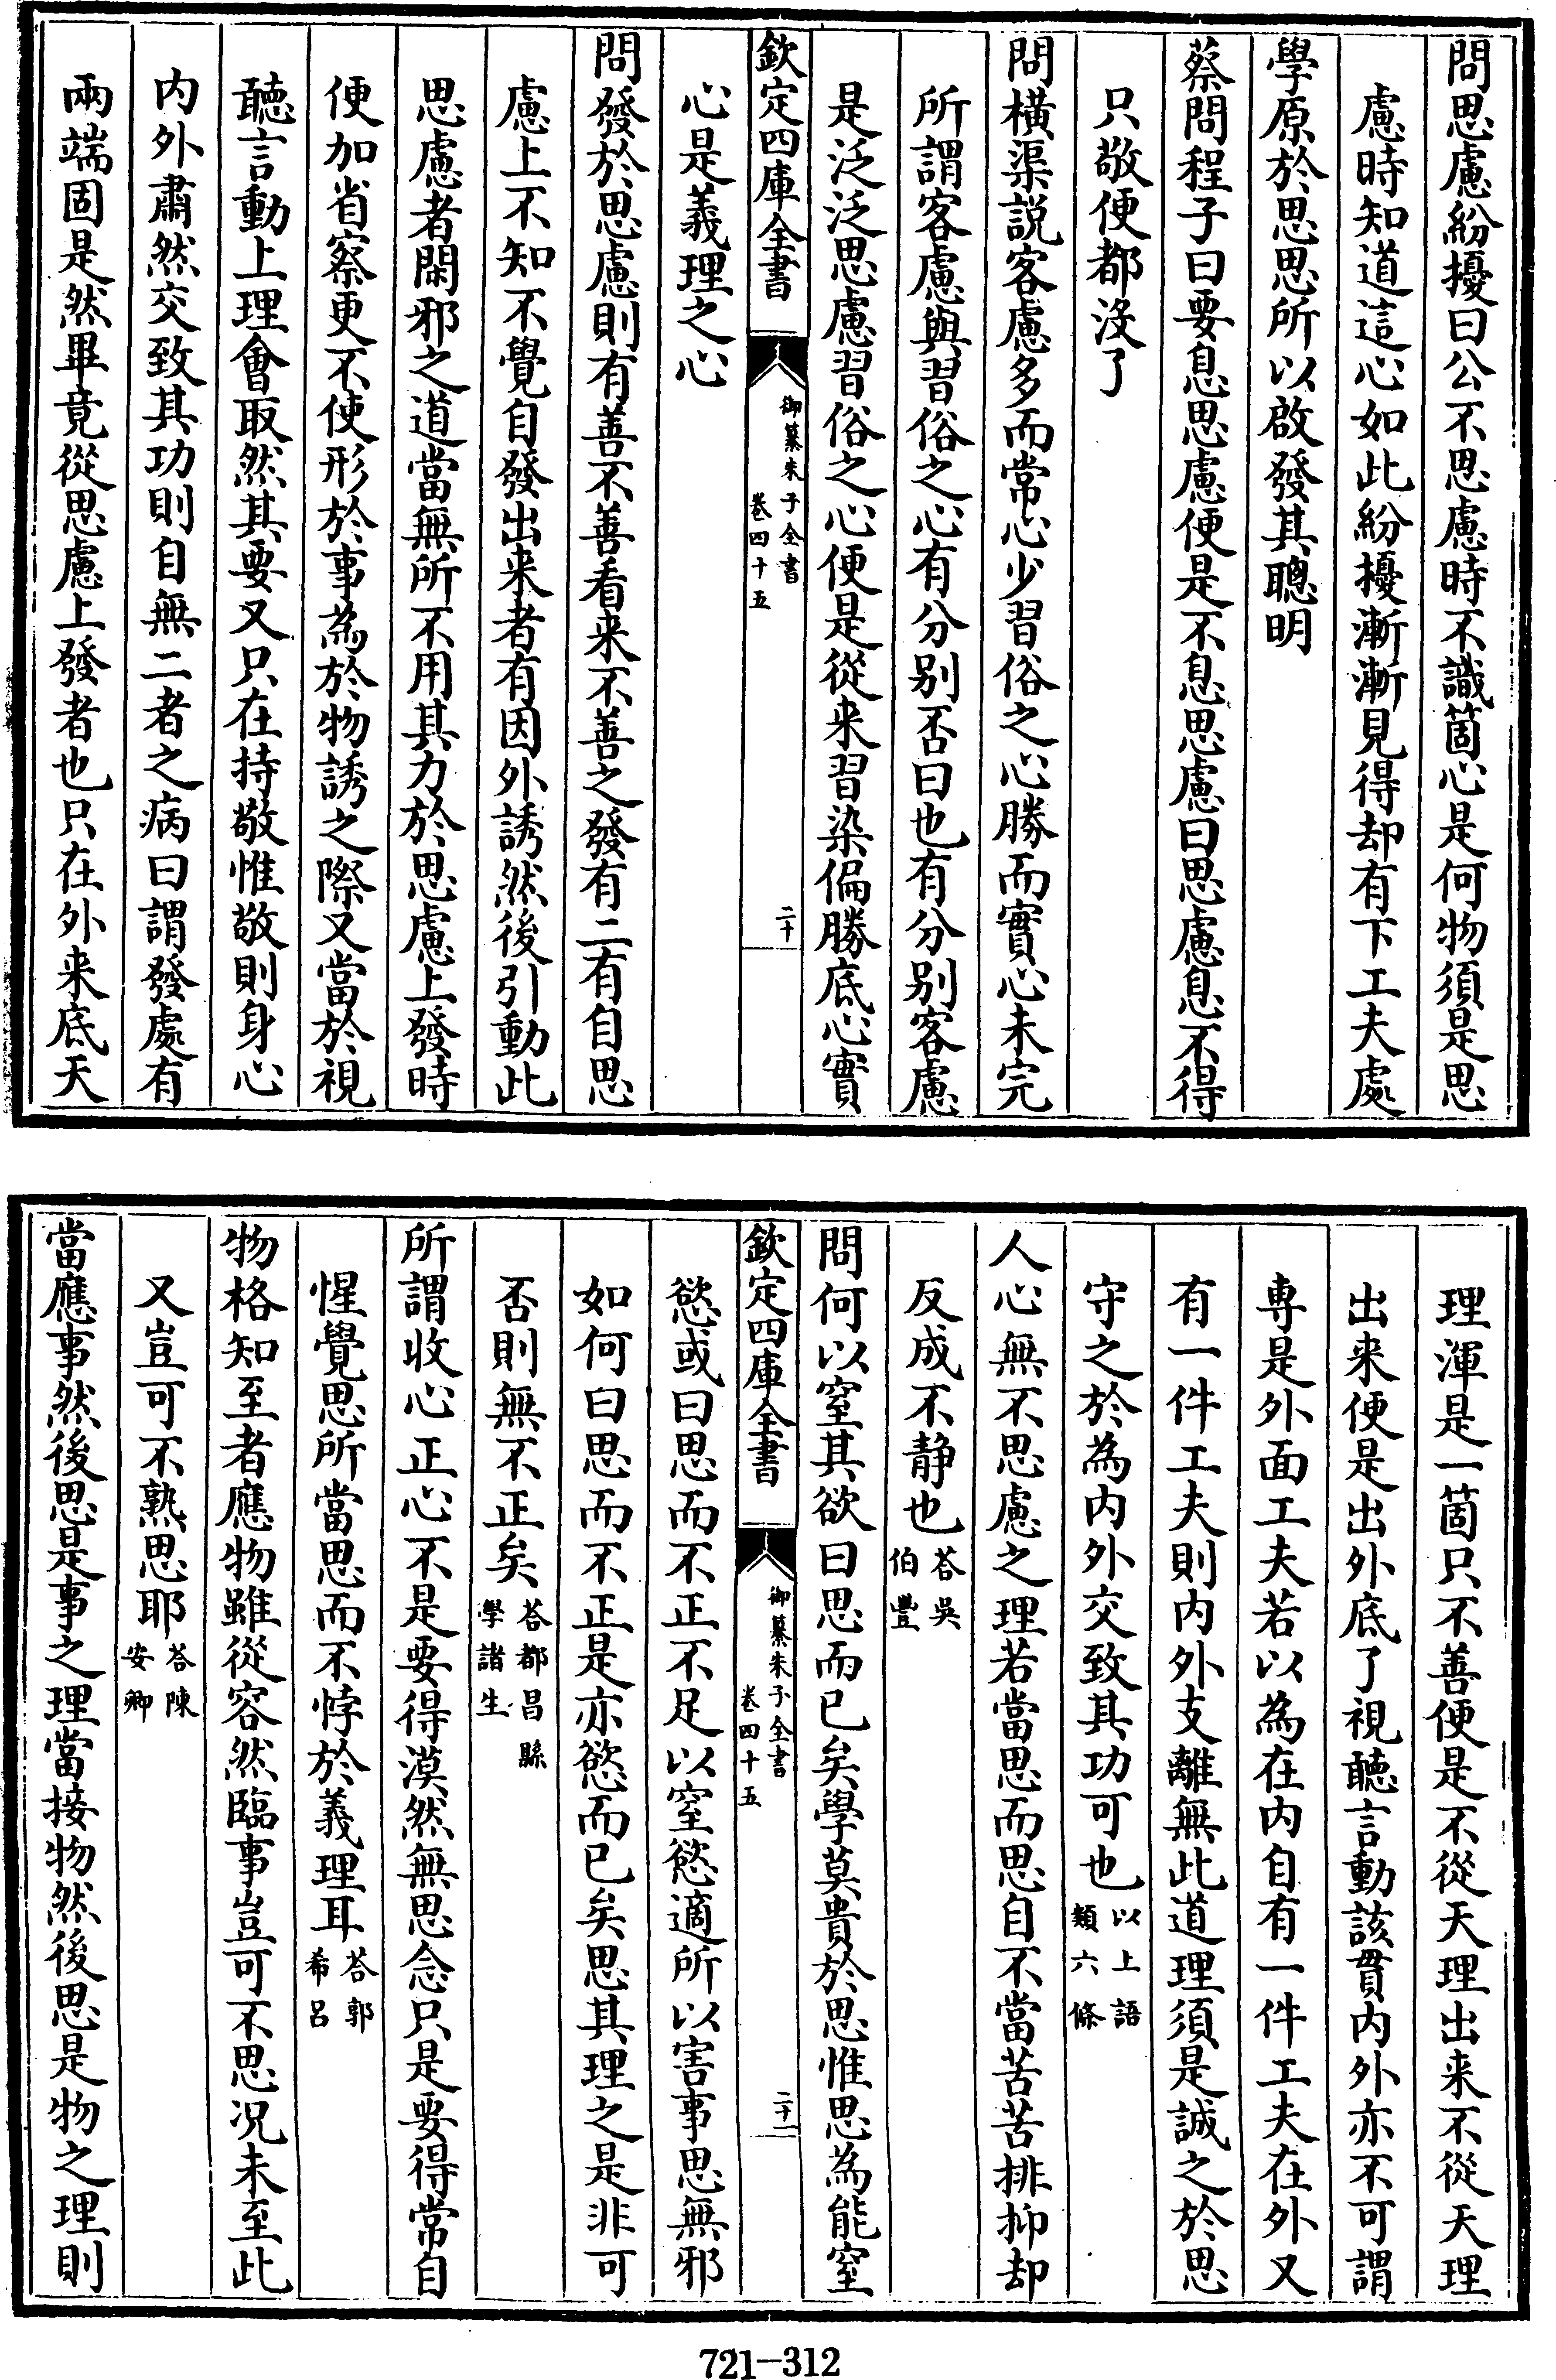 問思慮紛擾曰公不思慮時不識箇心是何物須是思
慮時知道這心如此紛擾漸漸見得却有下工夫處
學原於思思所以啟發其聰明
蔡問程子曰要息思慮便是不息思慮曰思慮息不得
只敬便都没了
問橫渠説客慮多而常心少習俗之心勝而實心未完
所謂客慮與習俗之心有分别否曰也有分别客慮
是泛泛思慮習俗之心便是從来習染偏勝底心實
欽定四庫全書
御纂朱子全書
卷四十五
二十
心是義理之心
問發於思慮則有善不善看来不善之發有二有自思
慮上不知不覺自發出来者有因外誘然後引動此
思慮者閑邪之道當無所不用其力於思慮上發時
便加省察更不使形於事為於物誘之際又當於視
聽言動上理會取然其要又只在持敬惟敬則身心
内外肅然交致其功則自無二者之病曰謂發處有
兩端固是然畢竟從思慮上發者也只在外来底天
理渾是一箇只不善便是不從天理出来不從天理
出来便是出外底了視聽言動該貫内外亦不可謂
専是外面工夫若以為在内自有一件工夫在外又
有一件工夫則内外支離無此道理須是誠之於思
守之於為内外交致其功可也以上語類六條
人心無不思慮之理若當思而思自不當苦苦排抑却
反成不静也荅吳伯豐
問何以窒其欲曰思而已矣學莫貴於思惟思為能窒
欽定四庫全書
御纂朱子全書
卷四十五
二十一
慾或曰思而不正不足以窒慾適所以害事思無邪
如何曰思而不正是亦慾而已矣思其理之是非可
否則無不正矣荅都昌縣學諸生
所謂收心正心不是要得漠然無思念只是要得常自
惺覺思所當思而不悖於義理耳荅郭希呂
物格知至者應物雖從容然臨事豈可不思况未至此
又豈可不熟思耶荅陳安卿
當應事然後思是事之理當接物然後思是物之理則
721-312